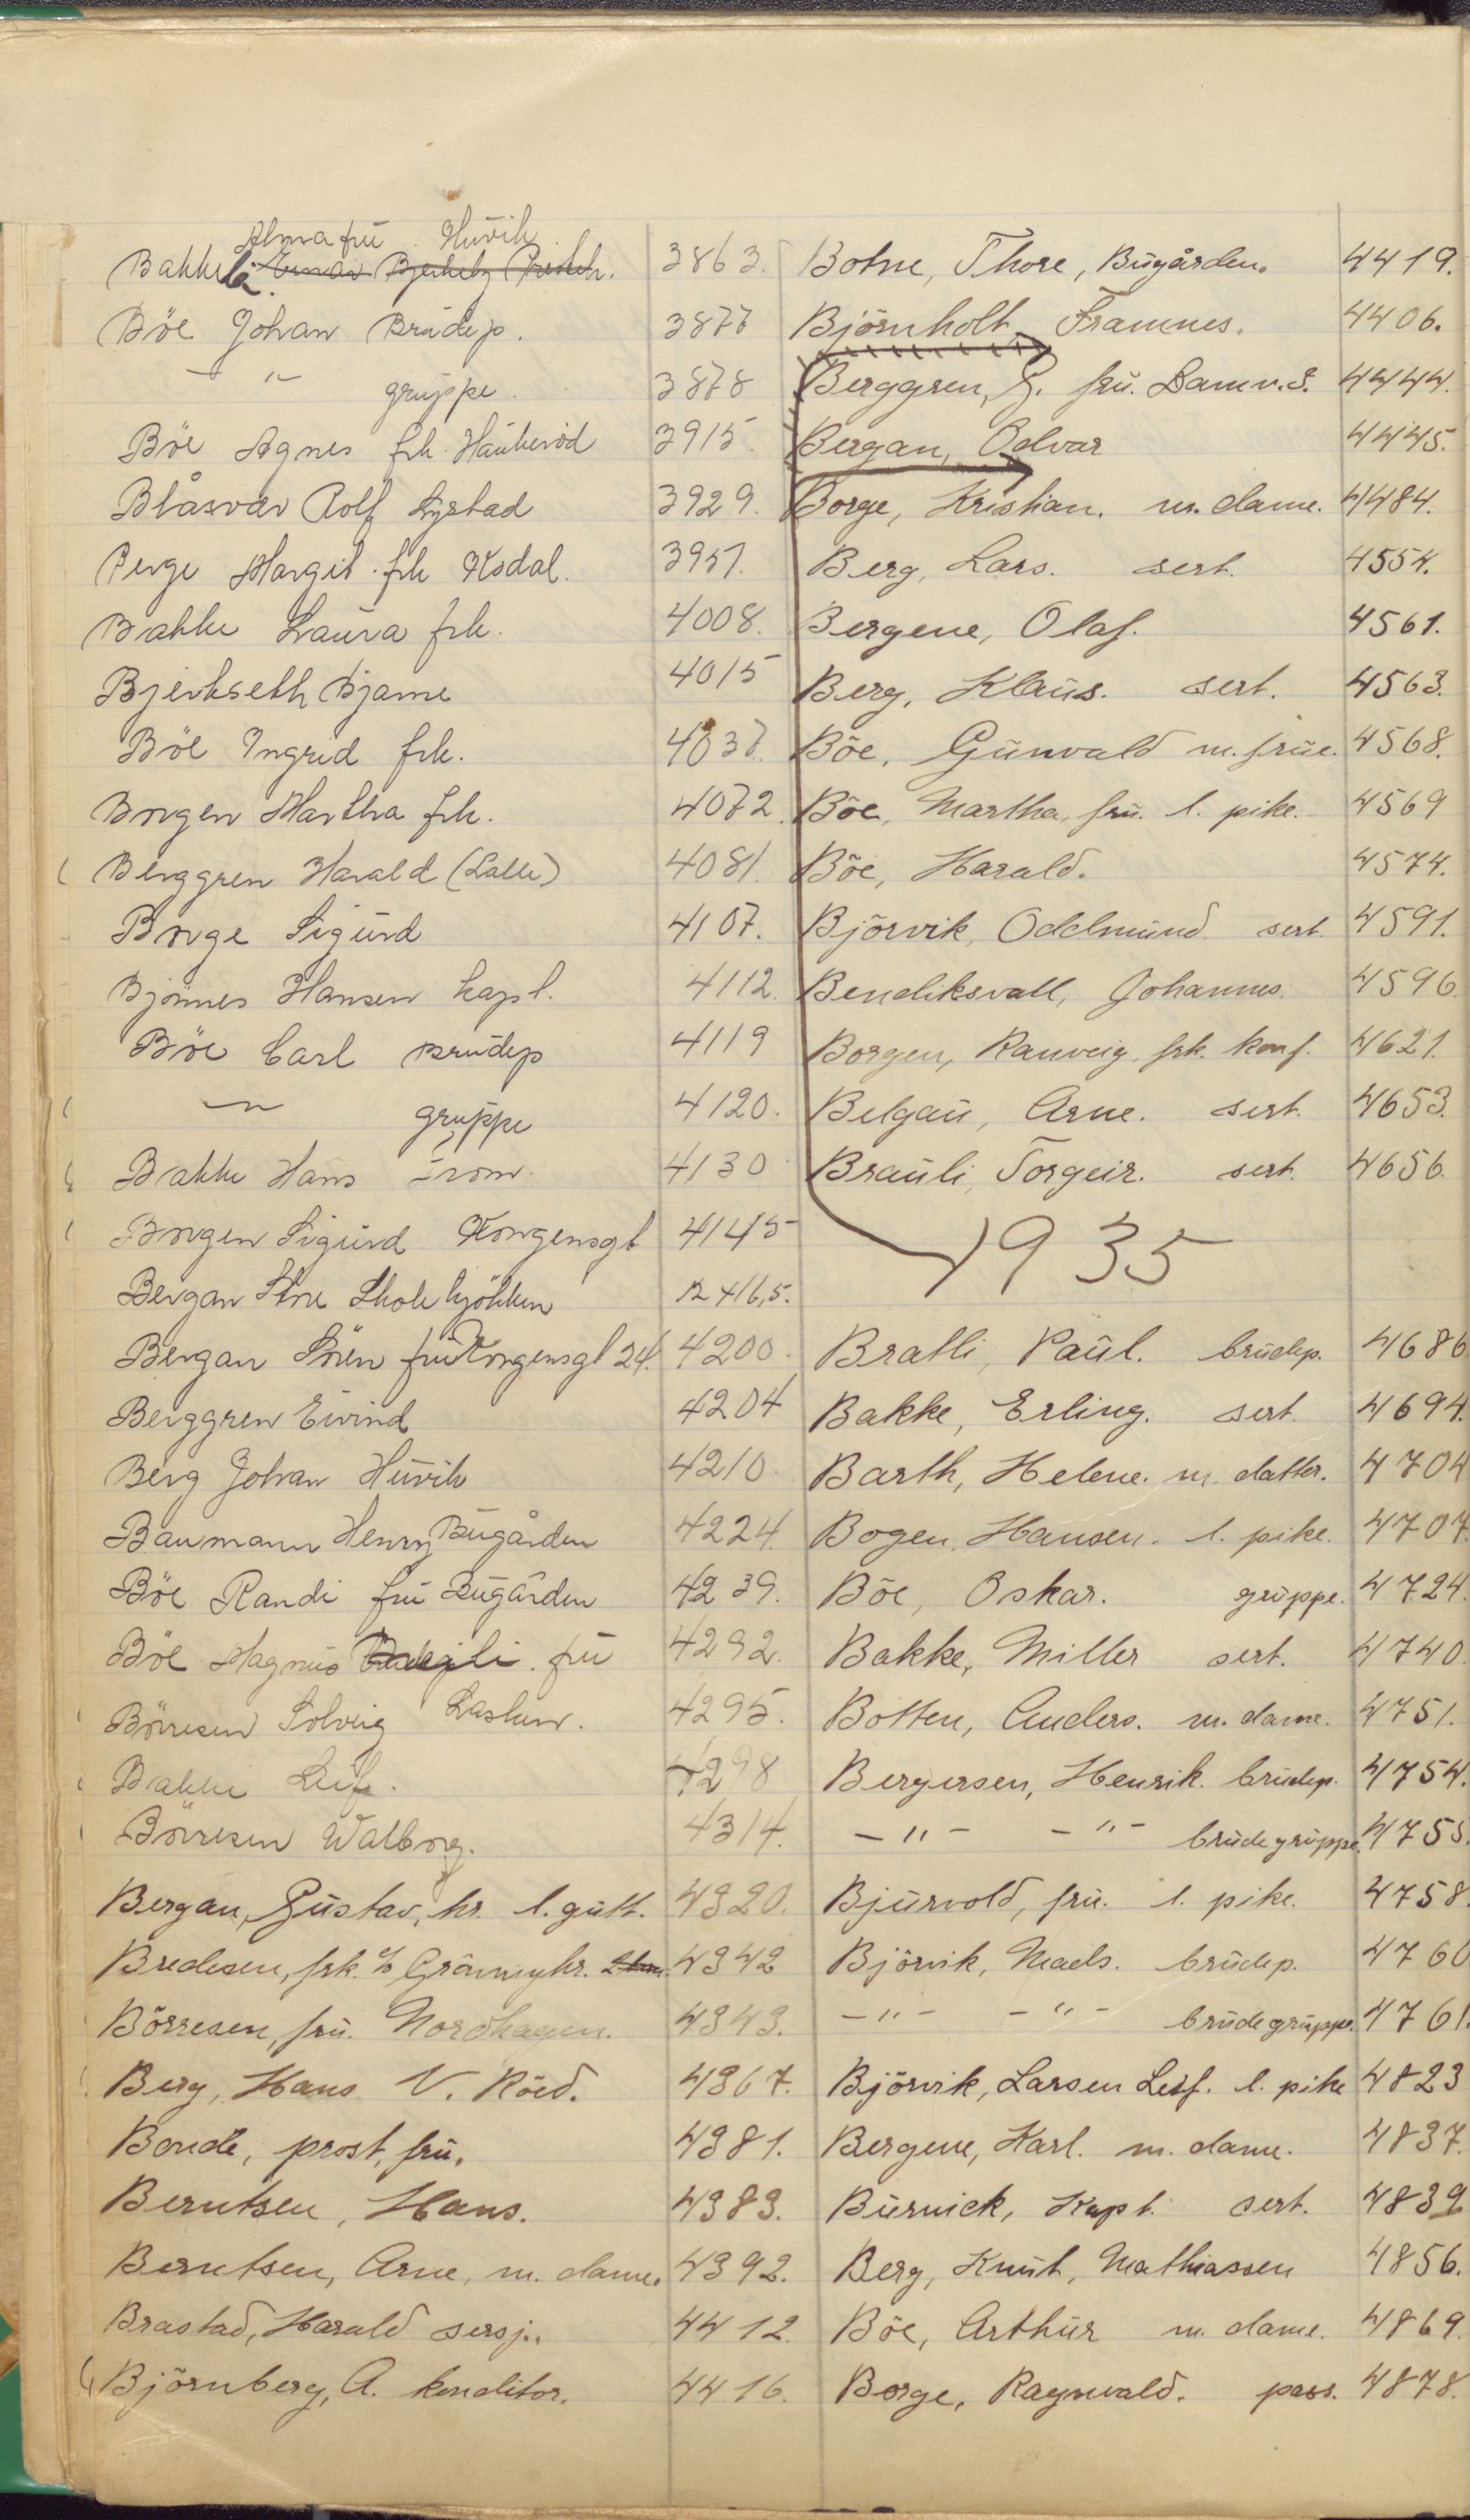 Alma frü Hüvik
Bakke 3863.
Böe Johan Brüdep. 3877
— " — grüppe. 3878
Böe Agnes frk. Haükeröd 3915.
Blåsvær Rolf Lystad 3929.
Berge Margit frk Kodal. 3951.
Bakke Laüra frk. 4008.
Bjerkseth Bjarne 4015
Böe Ingrid frk. 4037.
Borgen Martha frk. 4072.
Berggren Harald (Lalli) 4081.
Borge Sigürd 4107.
Bjönnes Hansen kapt. 4112.
Böe Carl Brüdep 4119
— " — grüppe 4120.
Bakke Hans 4130
Borgen Sigürd Kongensgt 4145
Bergan Skolekjökken
Bergan Sören frü Kongensgt 24. 4200.
Berggren Eivind 4204
Berg Johan Hüvik 4210.
Baumann Henry Bügården 4224.
Böe Randi frü Bügården 4239.
Böe Magnüs frü 4292.
Börresen Solveig 4295.
Bakke Leif. 4298
Börresen Walborg. 4314.
Bergan, Güstav, hr. l. gütt. 4320.
Bredesen, frk. 4342
Börresen, frü. Nordhagen. 4343.
Berg, Hans V. Röed. 4367.
Bonde, prost, frü. 4381.
Berntsen, Hans. 4383.
Berntsen, Arne, m. dame. 4392.
Brastad, Harald sersj. 4412.
Björnberg, A. konditor. 4416.
Botne, Thore, Bügården. 4419.
Björnholt, Framnes. 4406.
Berggren, G. frü. Damv. S. 4444.
Bergan, Odvar 4445.
Borge, Kristian. m. dame. 4484.
Berg, Lars. sert. 4554.
Bergene, Olaf. 4561.
Berg, Klaüs. sert. 4563.
Böe, Günvald m. früe. 4568.
Böe, Martha, frü. l. pike. 4569
Böe, Harald. 4574.
Björvik, Oddmünd sert. 4591.
Bendiksvall, Johannes. 4596
Borgen, Ranveig frk. konf. 4621.
Belgaü, Arne. sert. 4653.
Braüli, Torgeir. sert. 4656.
1935
Bratli, Paül. brüdep. 4686
Bakke, Erling. sert. 4694.
Barth, Helene. m. datter. 4704
Bogen, Hansen. l. pike. 4707.
Böe, Oskar. grüppe. 4724.
Bakke, Miller sert. 4740.
Botten, Anders. m. dame. 4751.
Bergersen, Henrik. brüdep. 4754.
— " — — " — brüdegrüppe. 4755.
Bjürvold, frü. l. pike. 4758.
Björvik, Mads. brüdep. 4760
— " — — " — brüdegrüppe. 4761.
Björvik, Larsen Leif. l. pike 4823
Bergene, Karl. m. dame. 4837.
Bürnick, Kapt. sert. 4839
Berg, Knüt, Mathiassen 4856.
Böe, Arthür m. dame. 4869.
Borge, Ragnvald. pass. 4878.